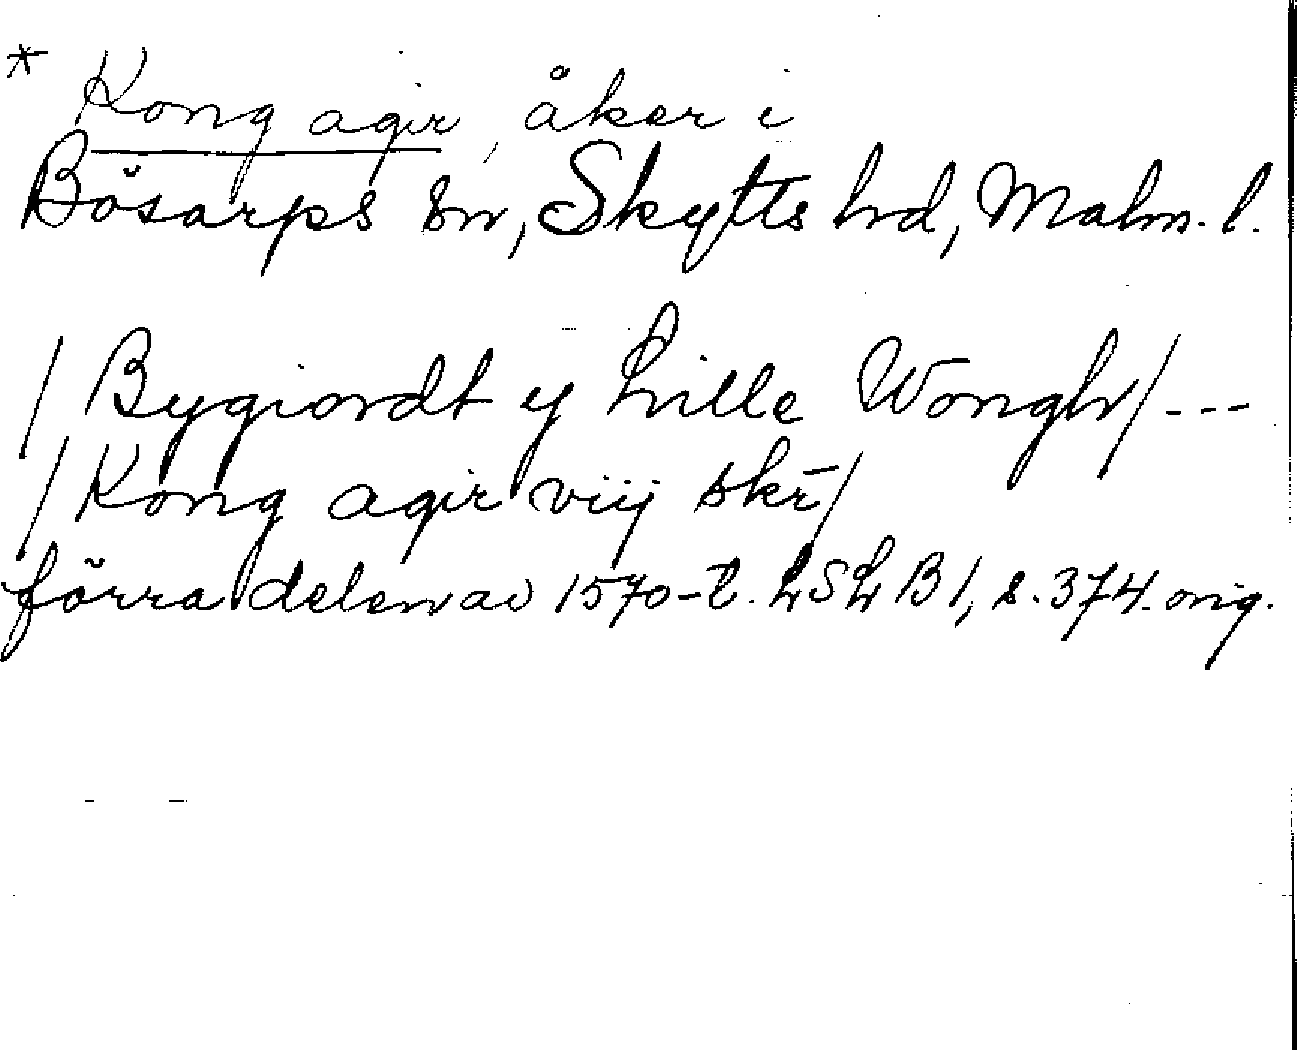 * Kong agir, åker i
Bösarps sn, Skytts hd, Malm. l.
/ Bygiordt y Lille Wongh / ---
/ Kong agir viij skr̄ /
förra delen av 1570-t. LSL B 1, s. 374. orig.